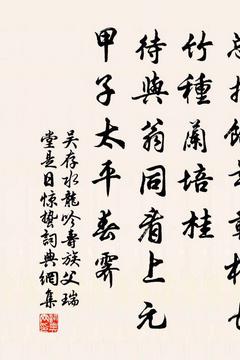 竹種蘭培桂
待與翁同看上元
甲子太平春霽
吳存水龍吟壽族父瑞
堂是日驚蟄詞典網集